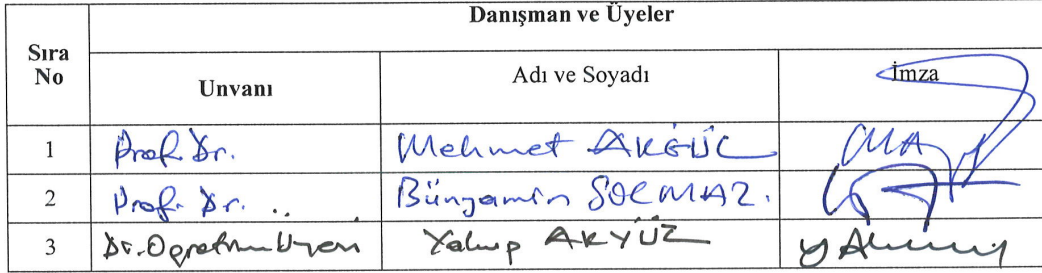 Danışman ve Üyeler
Sıra No Unvanı Adı ve Soyadı İmza
1 Prof. Dr. Mehmet AKGÜL
2 Prof. Dr. Bünyamin SOLMAZ.
3 Dr. Ogretim Üyesi Yakup AKYÜZ